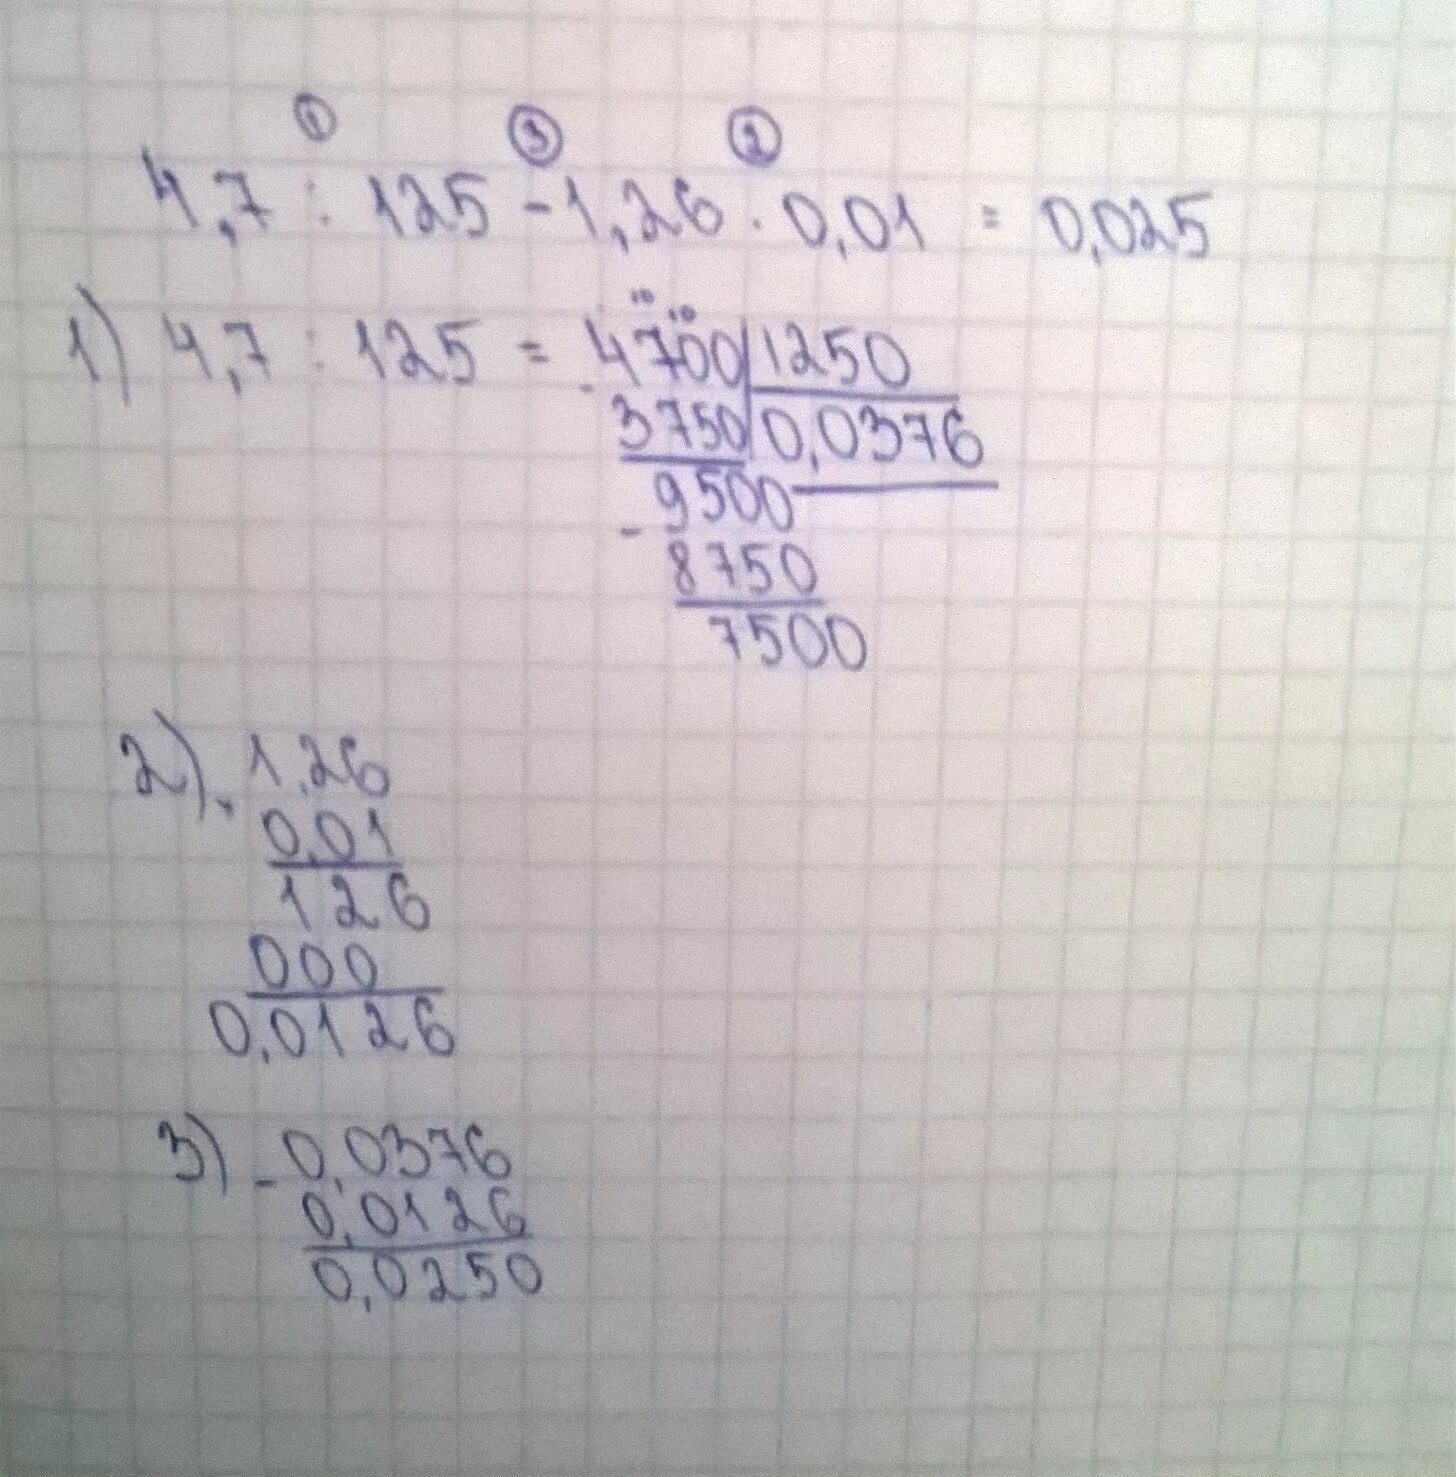 ① ③ ②
4,7 : 125 - 1,26 · 0,01 = 0,025
10 10
1) 4,7 : 125 = 4700 | 1250
- 3750 | 0,0376
- 9500
8750
7500
2) · 1,26
0,01
126
000
0,0126
3) - 0,0376
0,0126
0,0250